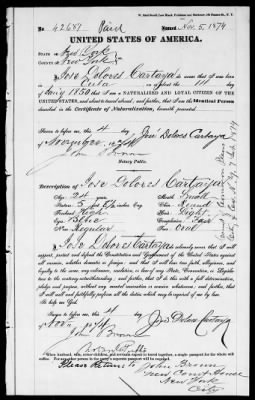 No. 42687 Paid Issued Nov. 5, 1874
UNITED STATES OF AMERICA.
STATE OF New York
COUNTY OF New York
I Jose Dolores Cartaya do swear that I was born
in Cuba on or about the
day of 1850 that I am a NATURALIZED and LOYAL CITIZEN OF THE
UNITED STATES, and about to travel abroad; and further, that I am the Identical Person
described in the Certificate of Naturalization, herewith presented.
Sworn to before me this 4 day Jose Dolores Cartaya
of November 1874
John Brown
Notary Public.
Description of Jose Dolores Cartaya
Age: 24 years Mouth: Small
Stature: 5 feet Chin: Round
Forehead: High Hair: Light
Eyes: Blue Complexion: Fair
Nose: Regular Face: Oval
I Jose Dolores Cartaya do solemnly swear that I will
support, protect and defend the Constitution and Government of the United States against
all enemies, whether domestic or foreign; and that I will bear true faith, allegiance, and
loyalty to the same, any ordinance, resolution, or law of any State, Convention, or Legisla-
ture to the contrary notwithstanding; and further, that I do this with a full determination,
pledge and purpose, without any mental reservation or evasion whatsoever; and further, that
I will well and faithfully perform all the duties which may be required of me by law. So
help me God.
Sworn to before me this 4 day
of Nov 1874 Jose Dolores Cartaya
John Brown
Notary Public
When husband, wife, minor children, and servants expect to travel together, a single passport for the whole will suffice.
For any other person in the party a separate passport will be required.
Please Return to John Brown
New Court House
New York
City